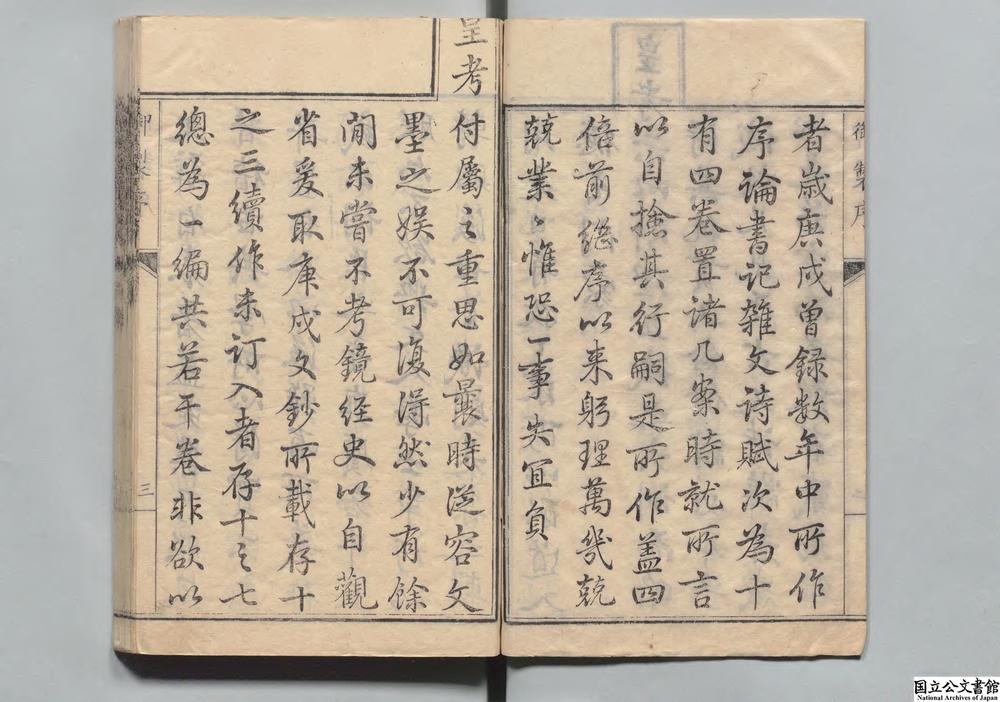 御製序
者歲庚戌曾録数年中所作
序論書記雜文詩賦次為十
有四卷置諸几案時就所言
以自撿其行嗣是所作盖四
倍前繼序以来躬理萬幾兢
兢業〻惟恐一事失宜負
皇考付屬之重思如曩時從容文
墨之娱不可復得然少有餘
閒未嘗不考鏡经史以自觀
省爰取庚戌文鈔所載存十
之三續作未订入者存十之七
總為一編共若干卷非欲以
御製序
三
国立公文書館
National Archives of Japan